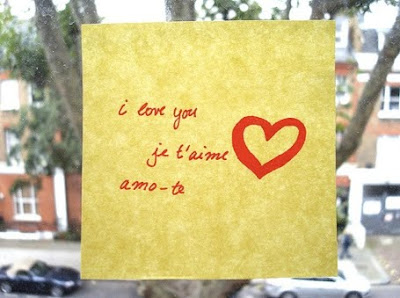 i love you
je t'aime
amo-te